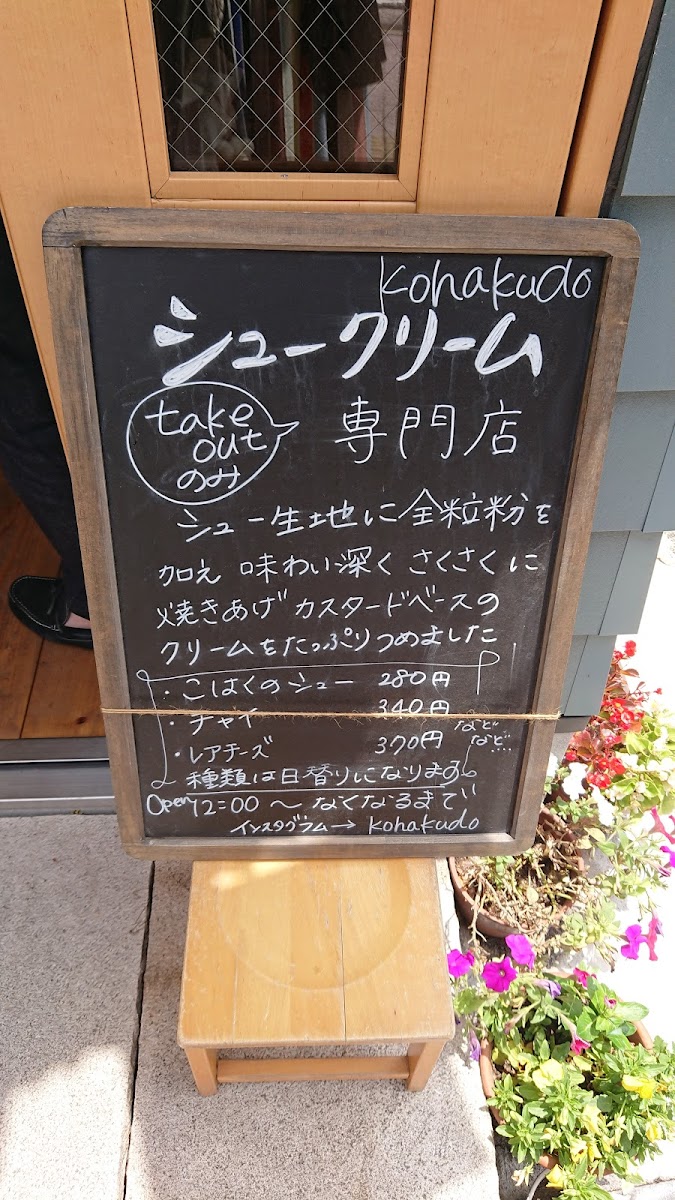 kohakudo
シュークリーム
take
out
のみ
専門店
シュー生地に全粒粉を
加え 味わい深く さくさくに
焼きあげ カスタードベースの
クリームをたっぷりつめました
・こはくのシュー 280円
・チャイ 340円
・レアチーズ 370円
などなど...
種類は日替りになります
Open 12:00 〜 なくなるまで
インスタグラム→ kohakudo